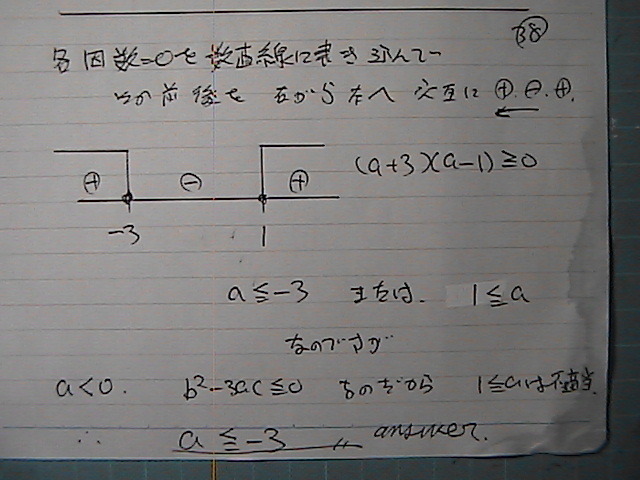 B⑧
各因数=0を数直線に書き並んで
その前後を右から左へ交互に⊕.⊖.⊕.
⊕ ⊖ ⊕ (a+3)(a-1)≧0
-3 1
a≦-3 または. 1≦a
なのですが
a<0. b²-3ac≦0 なのだから 1≦aは不適当.
∴ a≦-3 〃 answer.